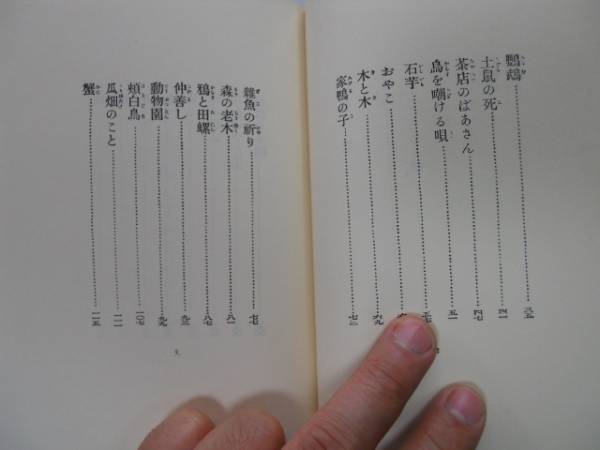 鸚鵡 三五
土鼠の死 四一
茶店のばあさん 四七
烏を嘲ける唄 五一
石芋 五七
おやこ
木と木 六九
家鴨の子 七三
雜魚の祈り 七七
森の老木 八一
鴉と田螺 八七
仲善し 九三
動物園 九九
頬白鳥 一〇七
瓜畑のこと 一一一
蟹 一一五